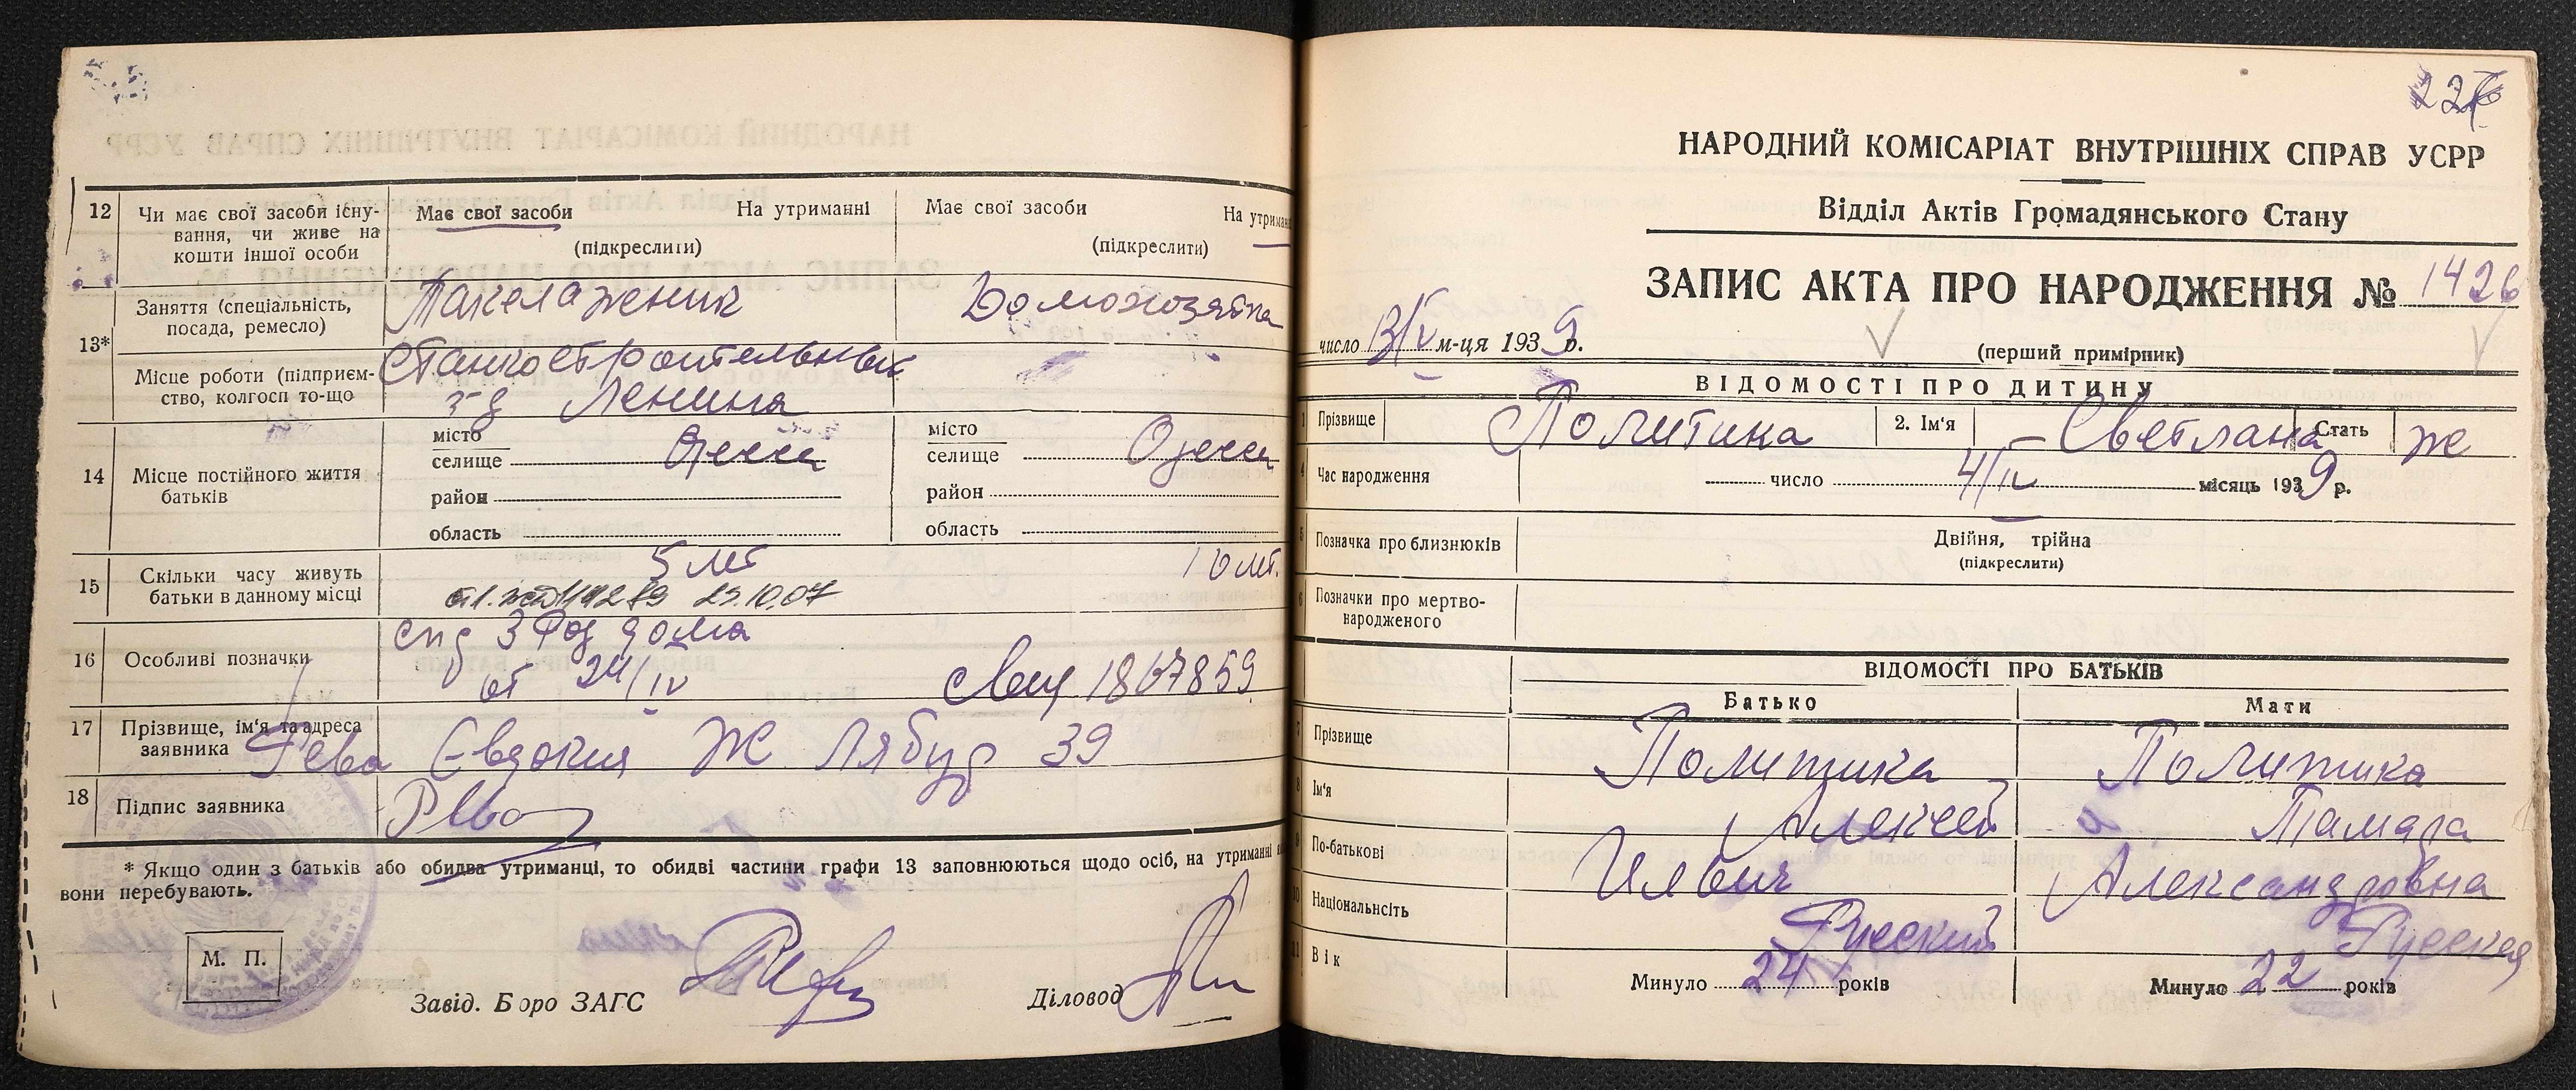 12
Чи має свої засоби існу-
вання, чи живе на
кошти іншої особи
Має свої засоби На утриманні
(підкреслити)
Має свої засоби На утриманні
(підкреслити)
13*
Заняття (спеціальність,
посада, ремесло)
Такелажник
Домохозяйка
Місце роботи (підприєм-
ство, колгосп то-що
Станкостроительный
з-д Ленина
14
Місце постійного життя
батьків
місто
селище Одесса
район
область
місто
селище Одесса
район
область
15
Скільки часу живуть
батьки в данному місці
5 лет
10 лет.
23.10.07
16
Особливі позначки
спр 3 Род дома
от 24/IV
свид 1867859
17
Прізвище, ім'я та адреса
заявника
Рева Евдокия Ж Лябур 39
18
Підпис заявника
Рева
* Якщо один з батьків або обидва утриманці, то обидві частини графи 13 заповнюються щодо осіб, на утриманні
вони перебувають.
М. П.
Завід. Бюро ЗАГС
Діловод
НАРОДНИЙ КОМІСАРІАТ ВНУТРІШНІХ СПРАВ УСРР
Відділ Актів Громадянського Стану
ЗАПИС АКТА ПРО НАРОДЖЕННЯ № 1426
число 13/IV м-ця 1939 р.
(перший примірник)
ВІДОМОСТІ ПРО ДИТИНУ
1 Прізвище Политика 2. Ім'я Светлана Стать ж
4 Час народження число 4/IV місяць 1939 р.
5 Позначка про близнюків
Двійня, трійна
(підкреслити)
6 Позначки про мертво-
народженого
ВІДОМОСТІ ПРО БАТЬКІВ
Батько Мати
7 Прізвище Политика Политика
8 Ім'я Алексей Тамара
9 По-батькові Ильич Александровна
10 Національність Русский Русская
11 Вік Минуло 24 років Минуло 22 років